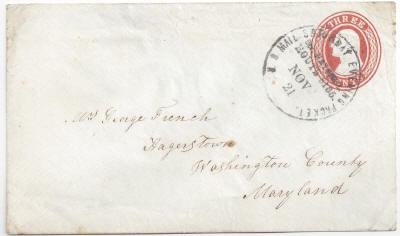 THREE
CENTS
U. S. MAIL
PACKET.
NOV
21
Mrs George French
Hagerstown
Washington County
Maryland